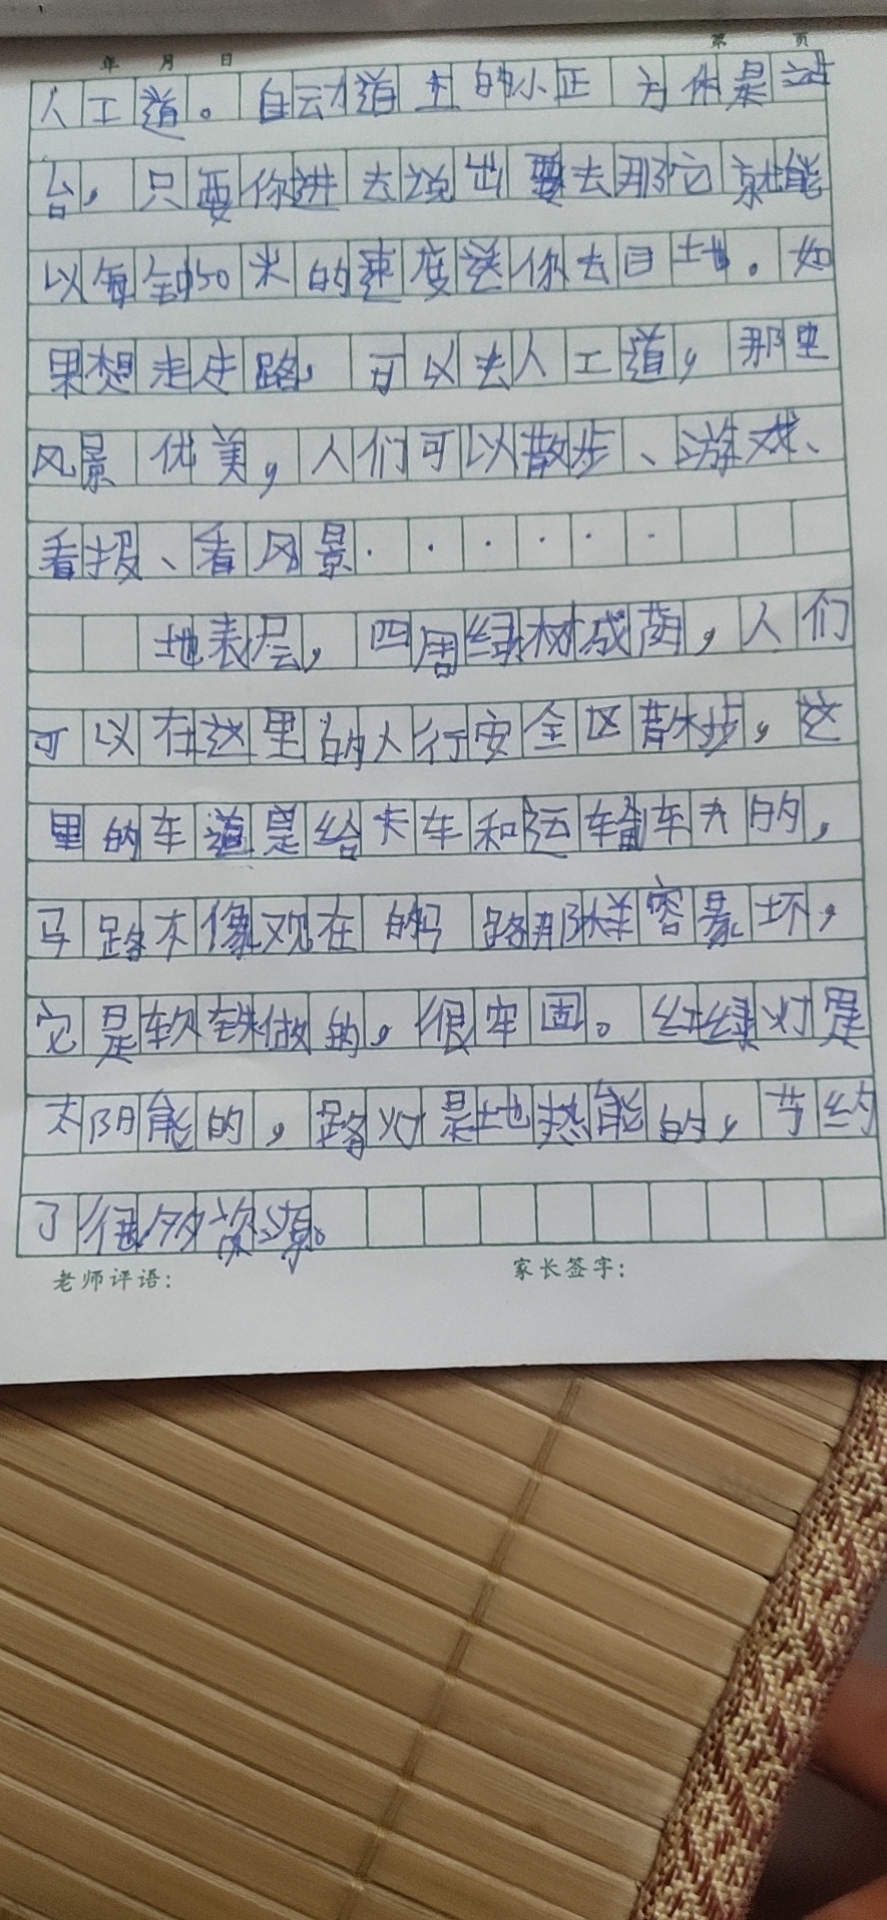 年 月 日 第 页
人工道。自动道上的小正方体是站
台,只要你进去说出要去那它就能
以每钟50米的速度送你去目地。如
果想走走路,可以去人工道,那里
风景优美,人们可以散步、游戏、
看报、看风景······
地表层,四周绿树成荫,人们
可以在这里的人行安全区散步,这
里的车道是给卡车和运输车开的,
马路不像现在的马路那样容易坏,
它是软铁做的,很牢固。红绿灯是
太阳能的,路灯是地热能的,节约
了很多资源。
老师评语: 家长签字: